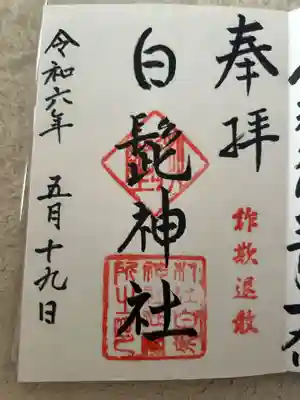 奉拝
詐欺退散
白髭神社
令和六年 五月十九日